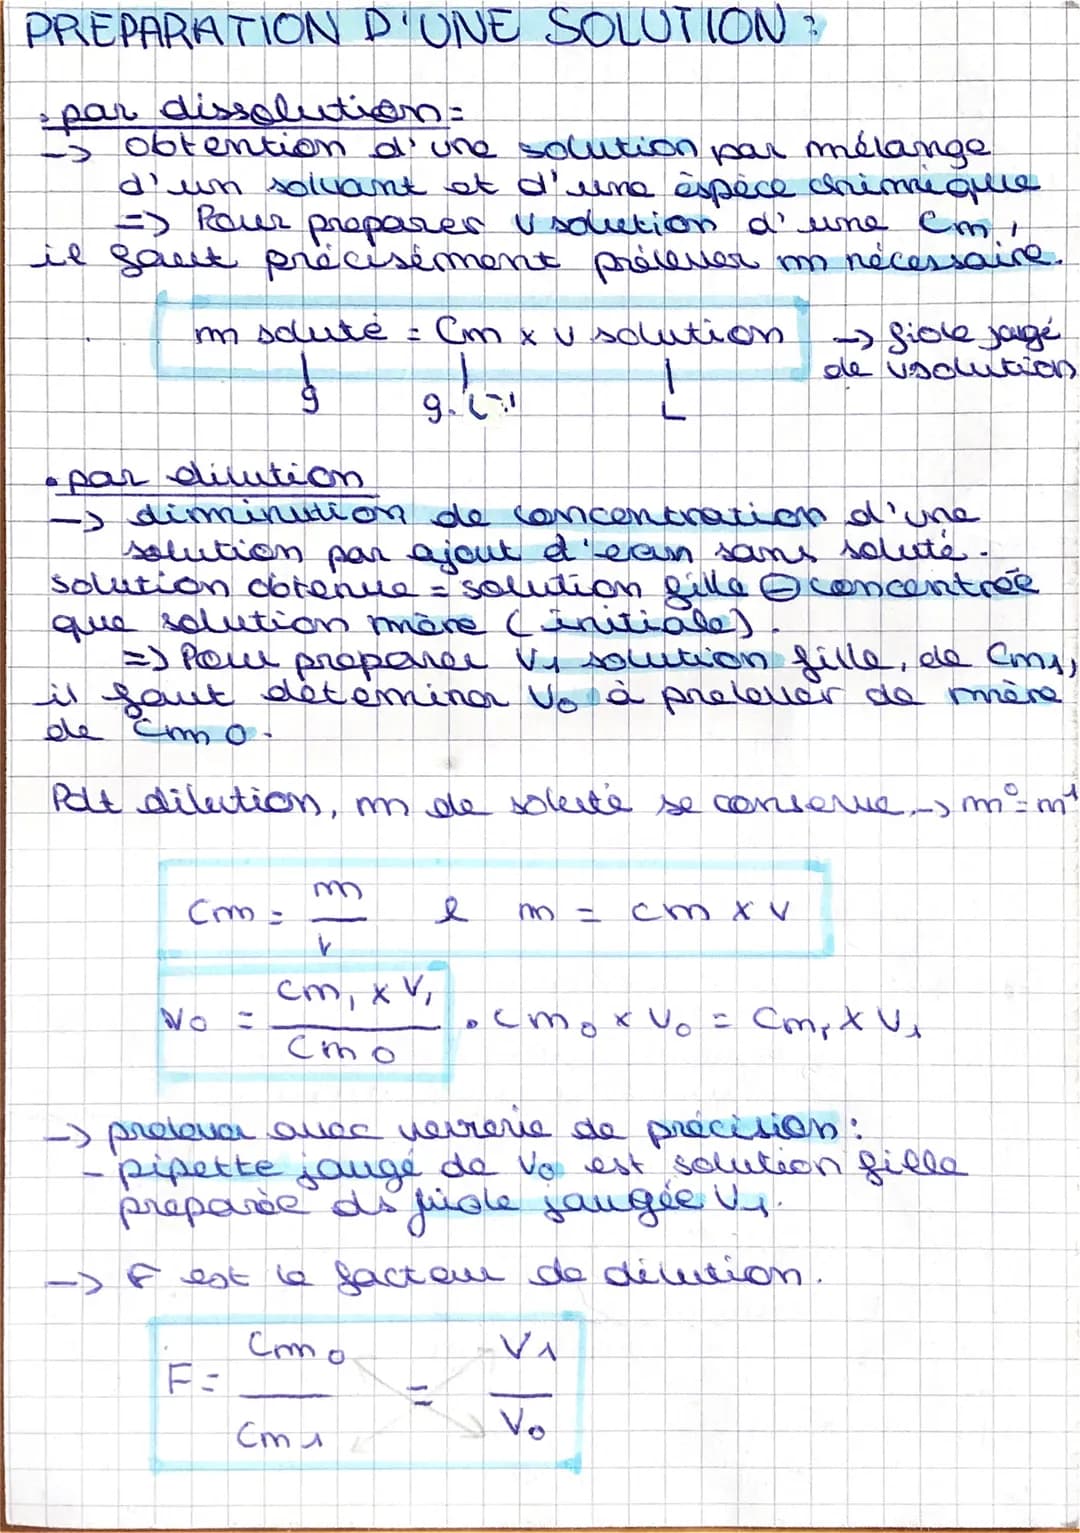 PREPARATION D'UNE SOLUTION :
• par dissolution :
-> obtention d'une solution par mélange
d'un solvant et d'une èspèce chimique
=> Pour preparer V solution d'une Cm,
il faut précisément prélever m nécessaire.
m soluté = Cm x V solution -> fiole jaugé
de Vsolution
g g.L-1 L
• par dilution
-> diminution de concentration d'une
solution par ajout d'eau sans soluté.
solution obtenue = solution fille ⊖ concentrée
que solution mère (initiale).
=> Pour preparer V1 solution fille, de Cm1,
il faut déterminer V0 à prelever de mère
de Cm0.
Pdt dilution, m de soluté se conserve -> m0 = m1
Cm = m/V & m = cm x v
V0 = Cm1 x V1 / Cm0 • Cm0 x V0 = Cm1 x V1
-> prelever avec verrerie de précision :
- pipette jaugé de V0 est solution fille
preparée ds fiole jaugée V1.
-> F est le facteur de dilution.
F = Cm0 / Cm1 = V1 / V0